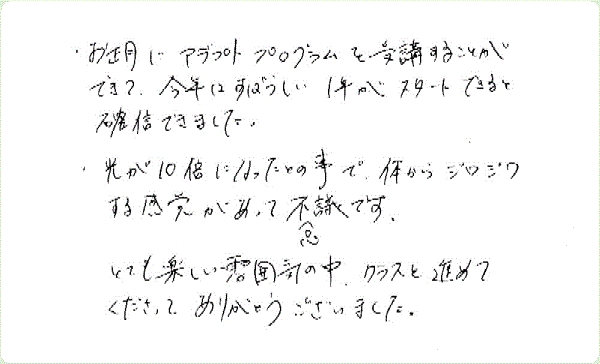 ・お正月に アデプト プログラムを受講することが
できて、今年はすばらしい 1年が スタートできると
確信できました。
・光が10倍になったとの事で、体から ジワジワ
する感覚があって 不議です。
思
とても楽しい雰囲気の中、クラスを進めて
くださって ありがとうございました。